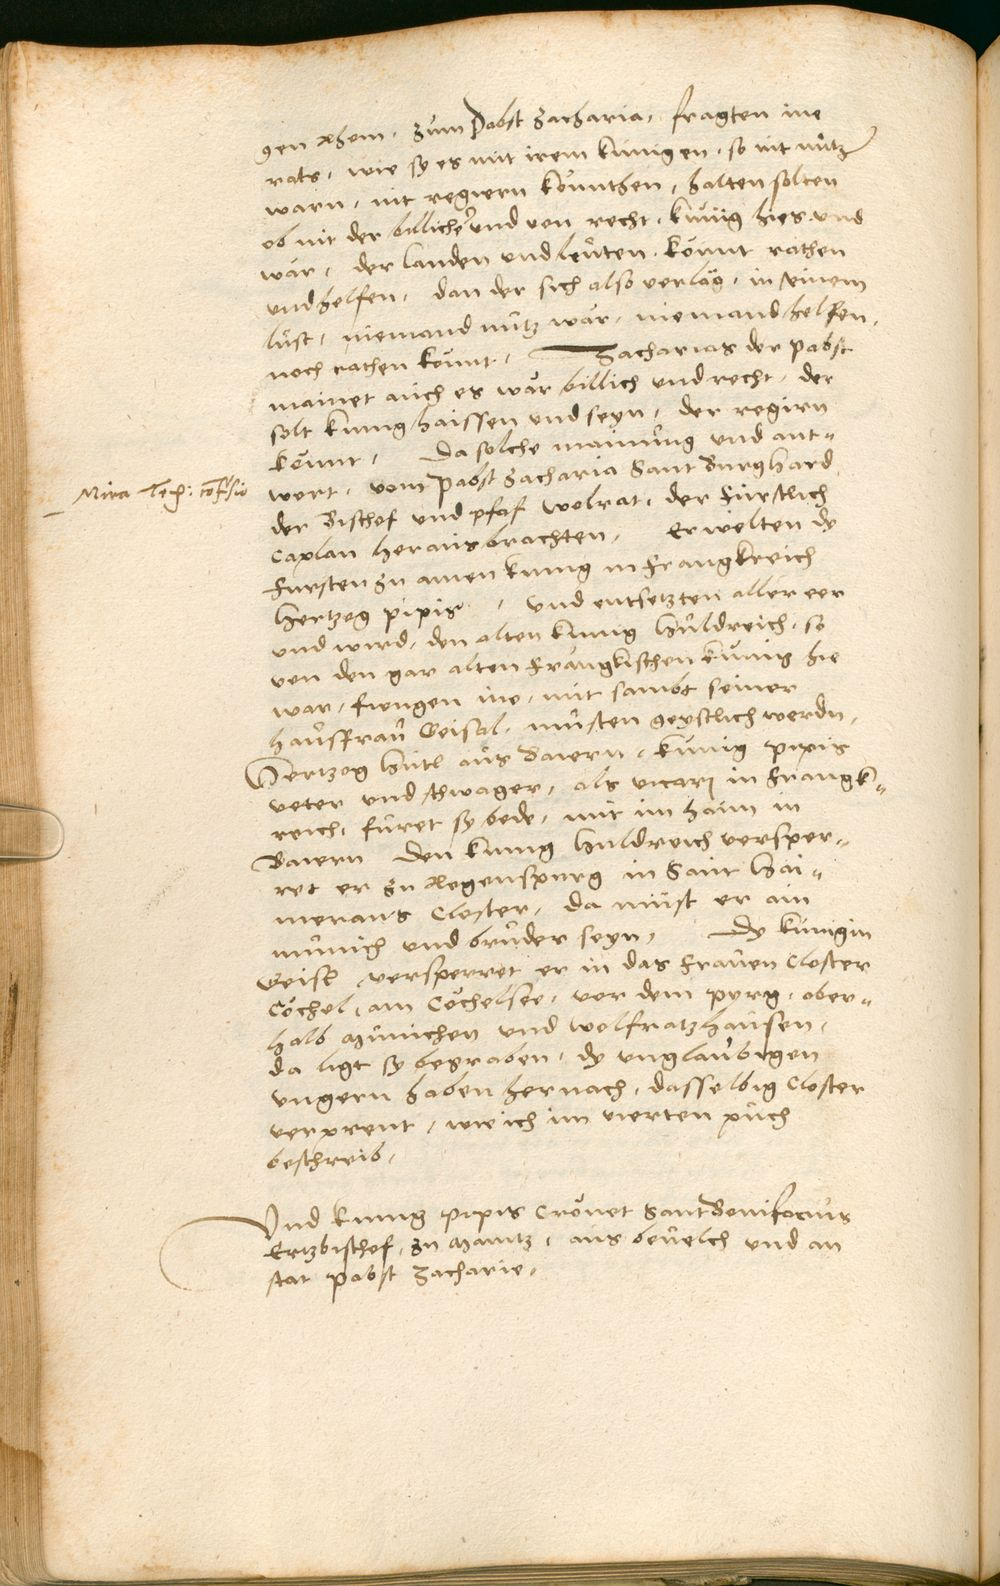 gen Rhom, zum Pabst Zacharia, fragten ine
rats, wie sy es mit irem kunigen, so nit nutz
warn, nit regiern konnthen, halten solten
ob nit der billicher und von recht, kunig hies und
wär, der landen und leuten, könnt rathen
und helfen, dan der sich also verläg, in seinem
lust, niemand nutz wär, niemand helfen,
noch rathen könnt, Zacharias der pabst
mainet auch es wär billich und recht, der
solt kunig haissen und seyn, der regirn
könnt, Da solche mainung und ant-
Mira
wort, vom Pabst Zacharia Sant Burghard
der Bischof und pfaf Volrat, der Fürstlich
Caplan heraus brachten, Erwelten dy
Fursten zu ainen kunig in Frangkreich
Hertzog pipis, und entsetzten aller eer
und wird, den alten kunig Huldreich, so
von den gar alten Frängkischen kunig hie
war, fiengen ine, mit sambt seiner
hausfrau Geisal, musten geystlich werdn,
Hertzog Hütl aus Baiern, kunig pipis
veter und schwager, als vicari in Frangk-
reich, füret sy bede, mit im haim in
Baiern den kunig Huldreich versper-
ret er zu Regenspurg in Saint Hai-
merans Closter, da must er ain
münich und bruder seyn, Dy kunigin
Geisl versperret er in das Frauen Closter
Cochel, am Cochelsee, vor dem pirg, ober-
halb Munichen und Wolfratzhausen,
da ligt sy begraben, dy unglaubigen
ungern haben hernach, dasselbig Closter
verprent, wie ich im vierten puch
beschreib,
Und kunig pipis Crönet Sant Bonifacius
Ertzbischof, zu Maintz, aus bevelch und an
stat pabst Zacharie,